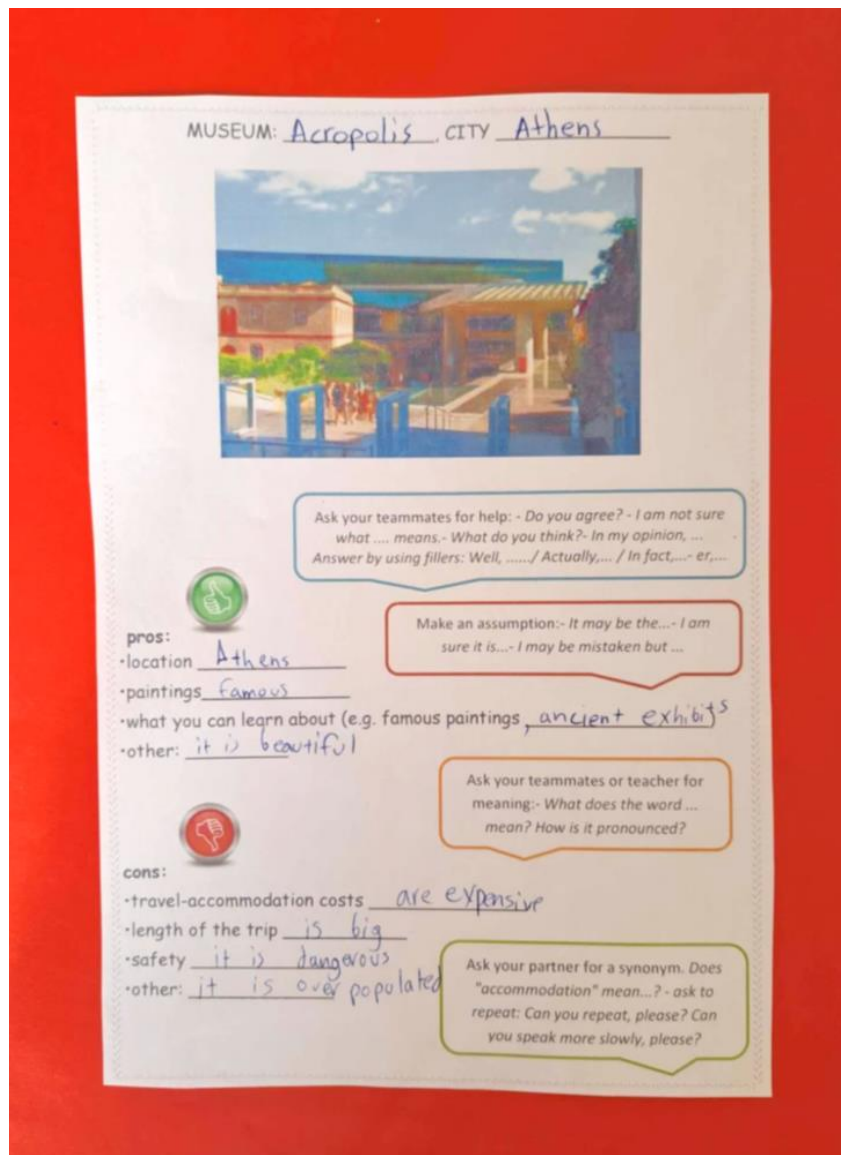 MUSEUM: Acropolis, CITY Athens
Ask your teammates for help: - Do you agree? - I am not sure
what .... means.- What do you think?- In my opinion, ...
Answer by using fillers: Well, ....../ Actually,... / In fact,...- er,....
Make an assumption:- It may be the...- I am
sure it is...- I may be mistaken but ...
pros:
•location Athens
•paintings famous
•what you can learn about (e.g. famous paintings, ancient exhibits
•other: it is beautiful
Ask your teammates or teacher for
meaning:- What does the word ...
mean? How is it pronounced?
cons:
•travel-accommodation costs are expensive
•length of the trip is big
•safety it is dangerous
•other: it is over populated
Ask your partner for a synonym. Does
"accommodation" mean...? - ask to
repeat: Can you repeat, please? Can
you speak more slowly, please?